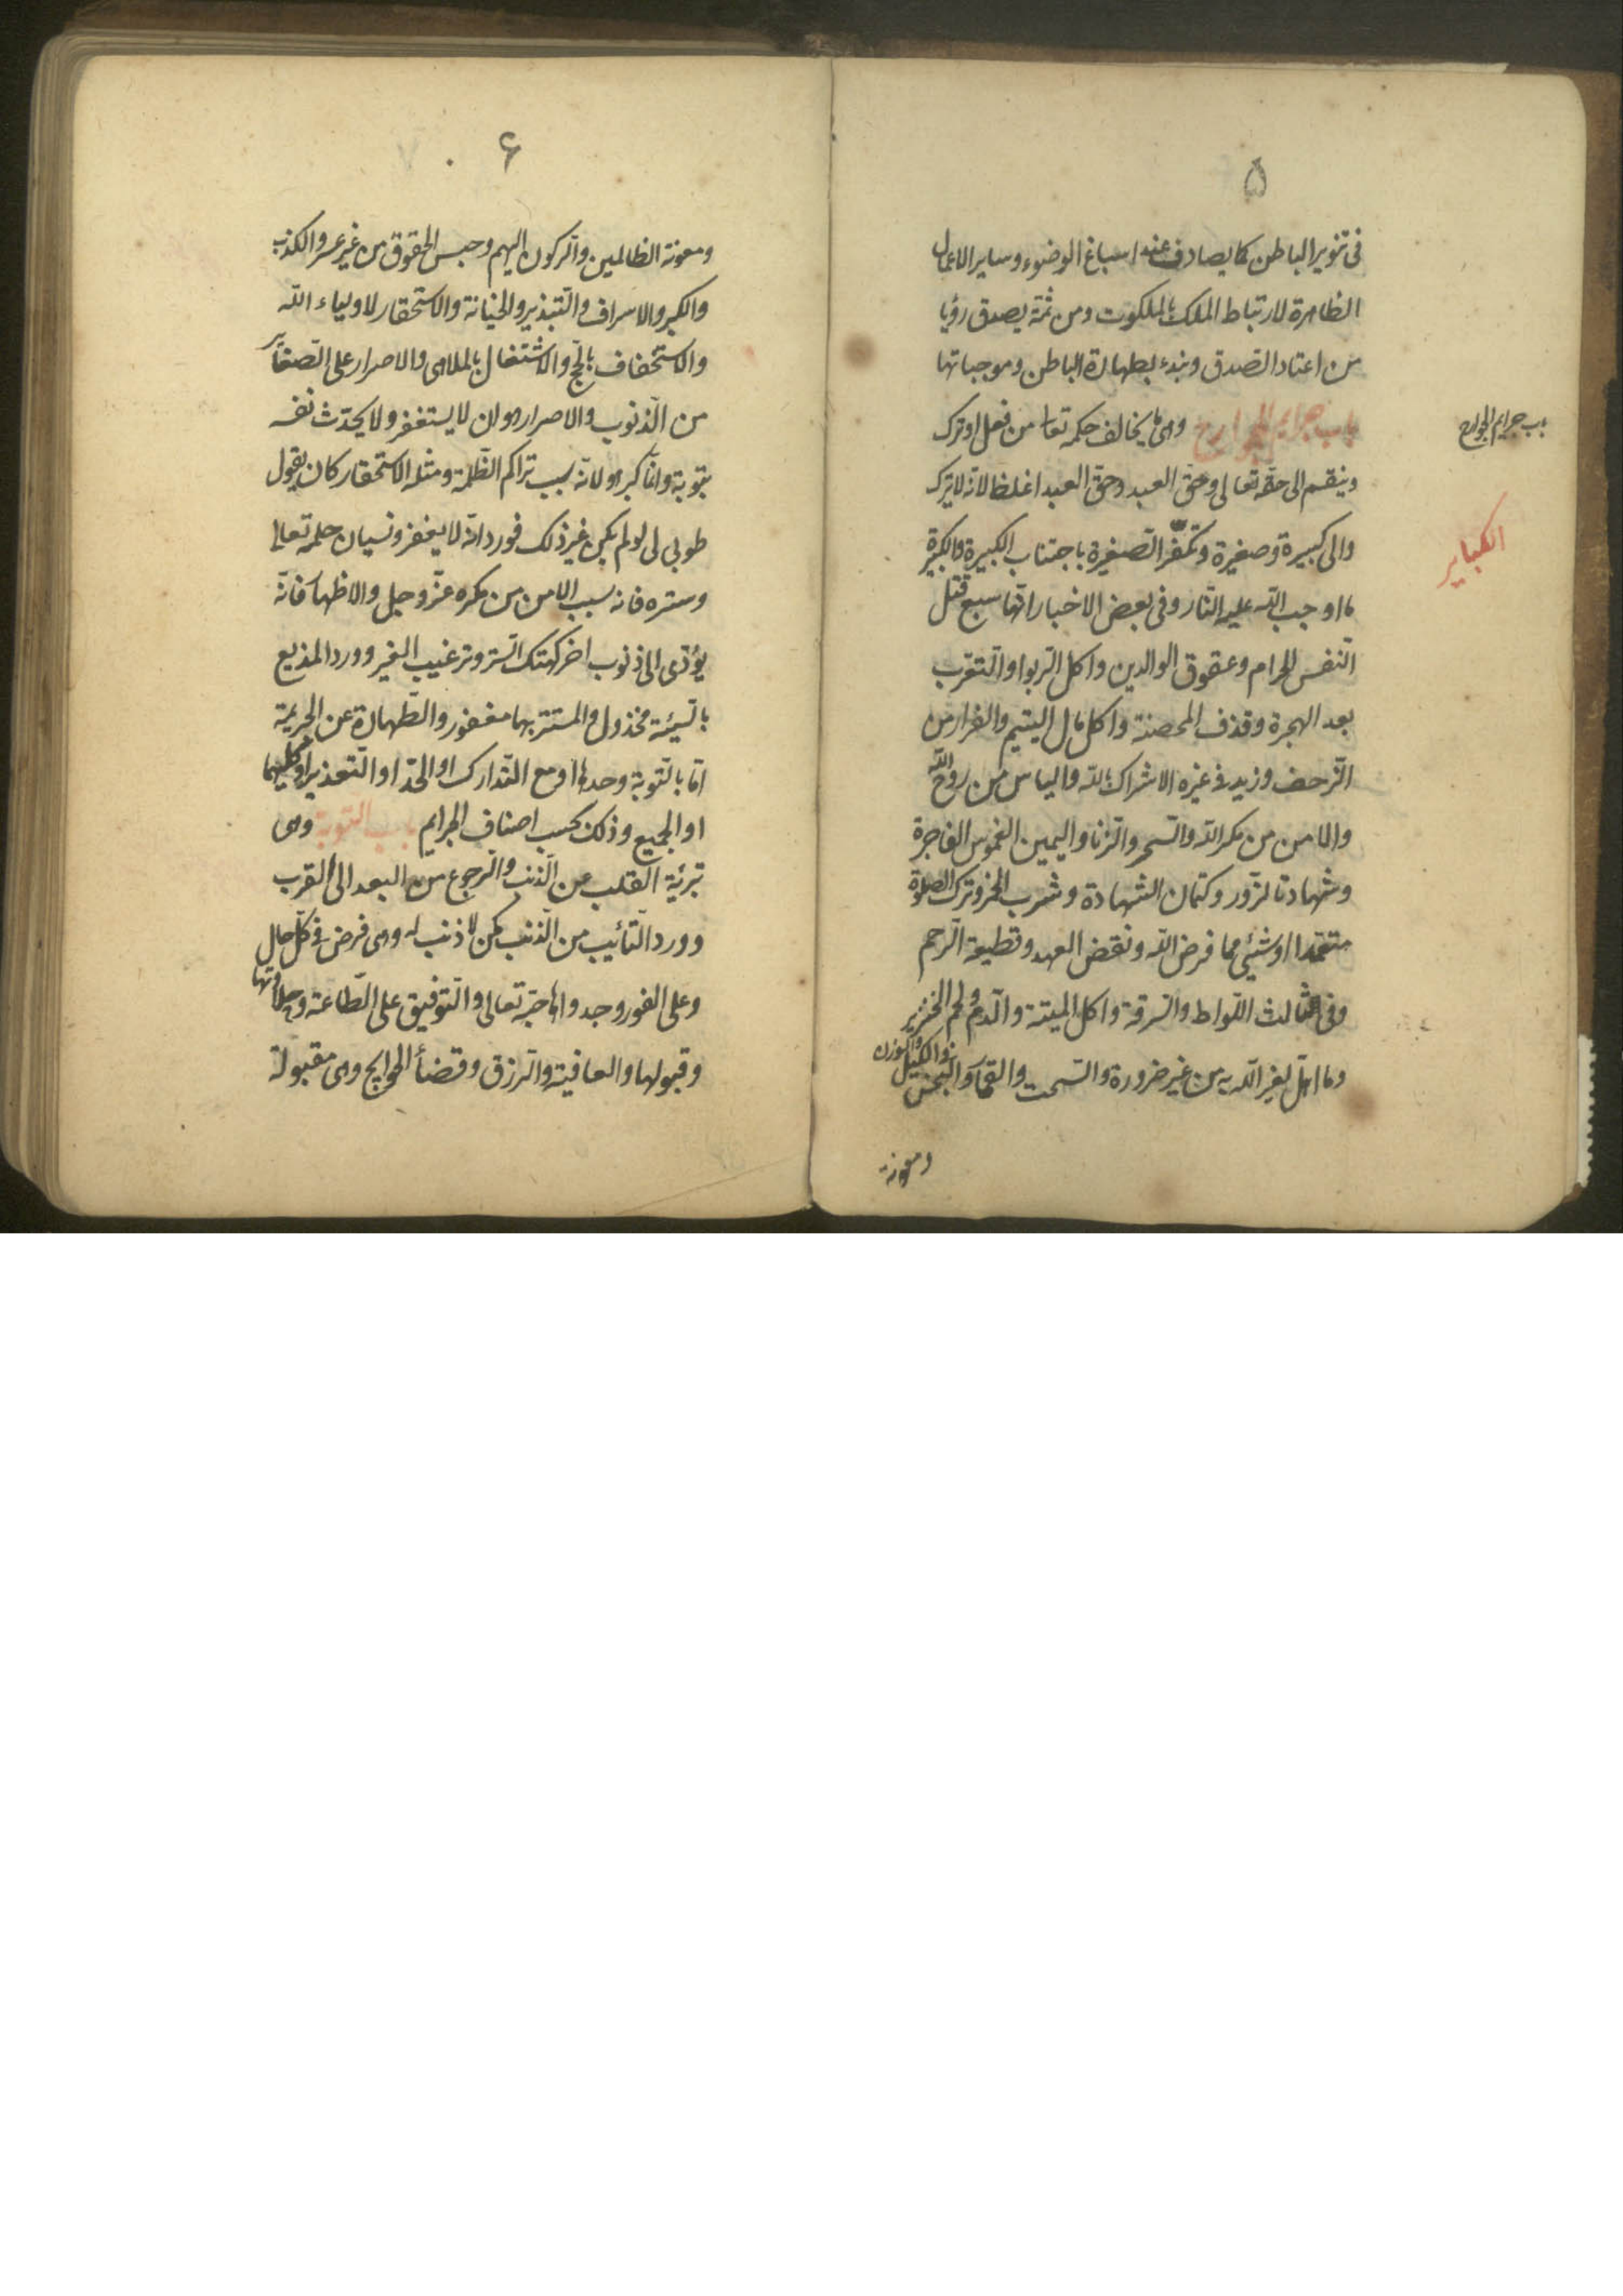 ۵
فى تنوير الباطن كما يصادف عنه اسباغ الوضوء وساير الاعمال
الظاهرة لارتباط الملك بالملكوت ومن ثمة يصدق رؤيا
من اعتاد الصّدق ونبدء بطهارة الباطن وموجباتها
باب جرايم الجوارح وهى ما يخالف حكمه تعا من فعل او ترك
باب جرايم الجوارح
وينقسم الى حقّه تعالى وحقّ العبد وحقّ العبد اغلظ لانّه لا يترك
والى كبيرة وصغيرة وتكفّر الصّغيرة باجتناب الكبيرة والكبيرة
الكباير
ما اوجب اللّه عليه النّار وفى بعض الاخبار انّها سبع قتل
النّفس الحرام وعقوق الوالدين واكل الرّبوا والتّعرّب
بعد الهجرة وقذف المحصنة واكل مال اليتيم والفرار من
الزّحف وزيد فى غيره الاشراك باللّه والياس من روح اللّه
والامن من مكر اللّه والسّحر والزّنا واليمين الغموس الفاجرة
وشهادة الزّور وكتمان الشهادة وشرب الخمر وترك الصلوة
متعمّدا او شيئ مما فرض اللّه ونقض العهد وقطيعة الرّحم
وفى ثالث اللّواط والسّرقة واكل الميتة والدّم ولحم الخنزير
وما اهلّ لغير اللّه به من غير ضرورة والسّحت والقمار والبخس فى الكيل والوزن
ومعونة
۶
ومعونة الظالمين والرّكون اليهم وحبس الحقوق من غير عسر والكذب
والكبر والاسراف والتّبذير والخيانة والاستحقار لاولياء اللّه
والاستخفاف بالحّج والاشتغال بالملاهى والاصرار على الصّغاير
من الذّنوب والاصرار هو ان لا يستغفر ولا يحدّث نفسه
بتوبة وانّما كبر هو لانّه سبب تراكم الظّلمة ومثله الاستحقار كان يقول
طوبى لى لو لم يكن غير ذلك فورد انّه لا يغفر ونسيان حلمه تعالى
وستره فانه سبب الامن من مكره عزّ وجل والاظهار فانّه
يؤدّى الى ذنوب اخر كهتك السّتر وترغيب الغير وورد المذيع
بالسّيئة مخذول والمستتر بها مغفور والطّهارة عن الجريمة
امّا بالتّوبة وحدها او مع التّدارك او الحدّ او التّعذير او كليهما
او الجميع وذلك بحسب اصناف الجرايم باب التوبة وهى
تبرئة القلب عن الذّنب والرّجوع من البعد الى القرب
وورد التّائب من الذّنب كمن لا ذنب له وهى فرض فى كلّ حال
وعلى الفور وجدواها حبّه تعالى والتّوفيق على الطّاعة وحلاوتها
وقبولها والعافية والرّزق وقضأ الحوايج وهى مقبولة